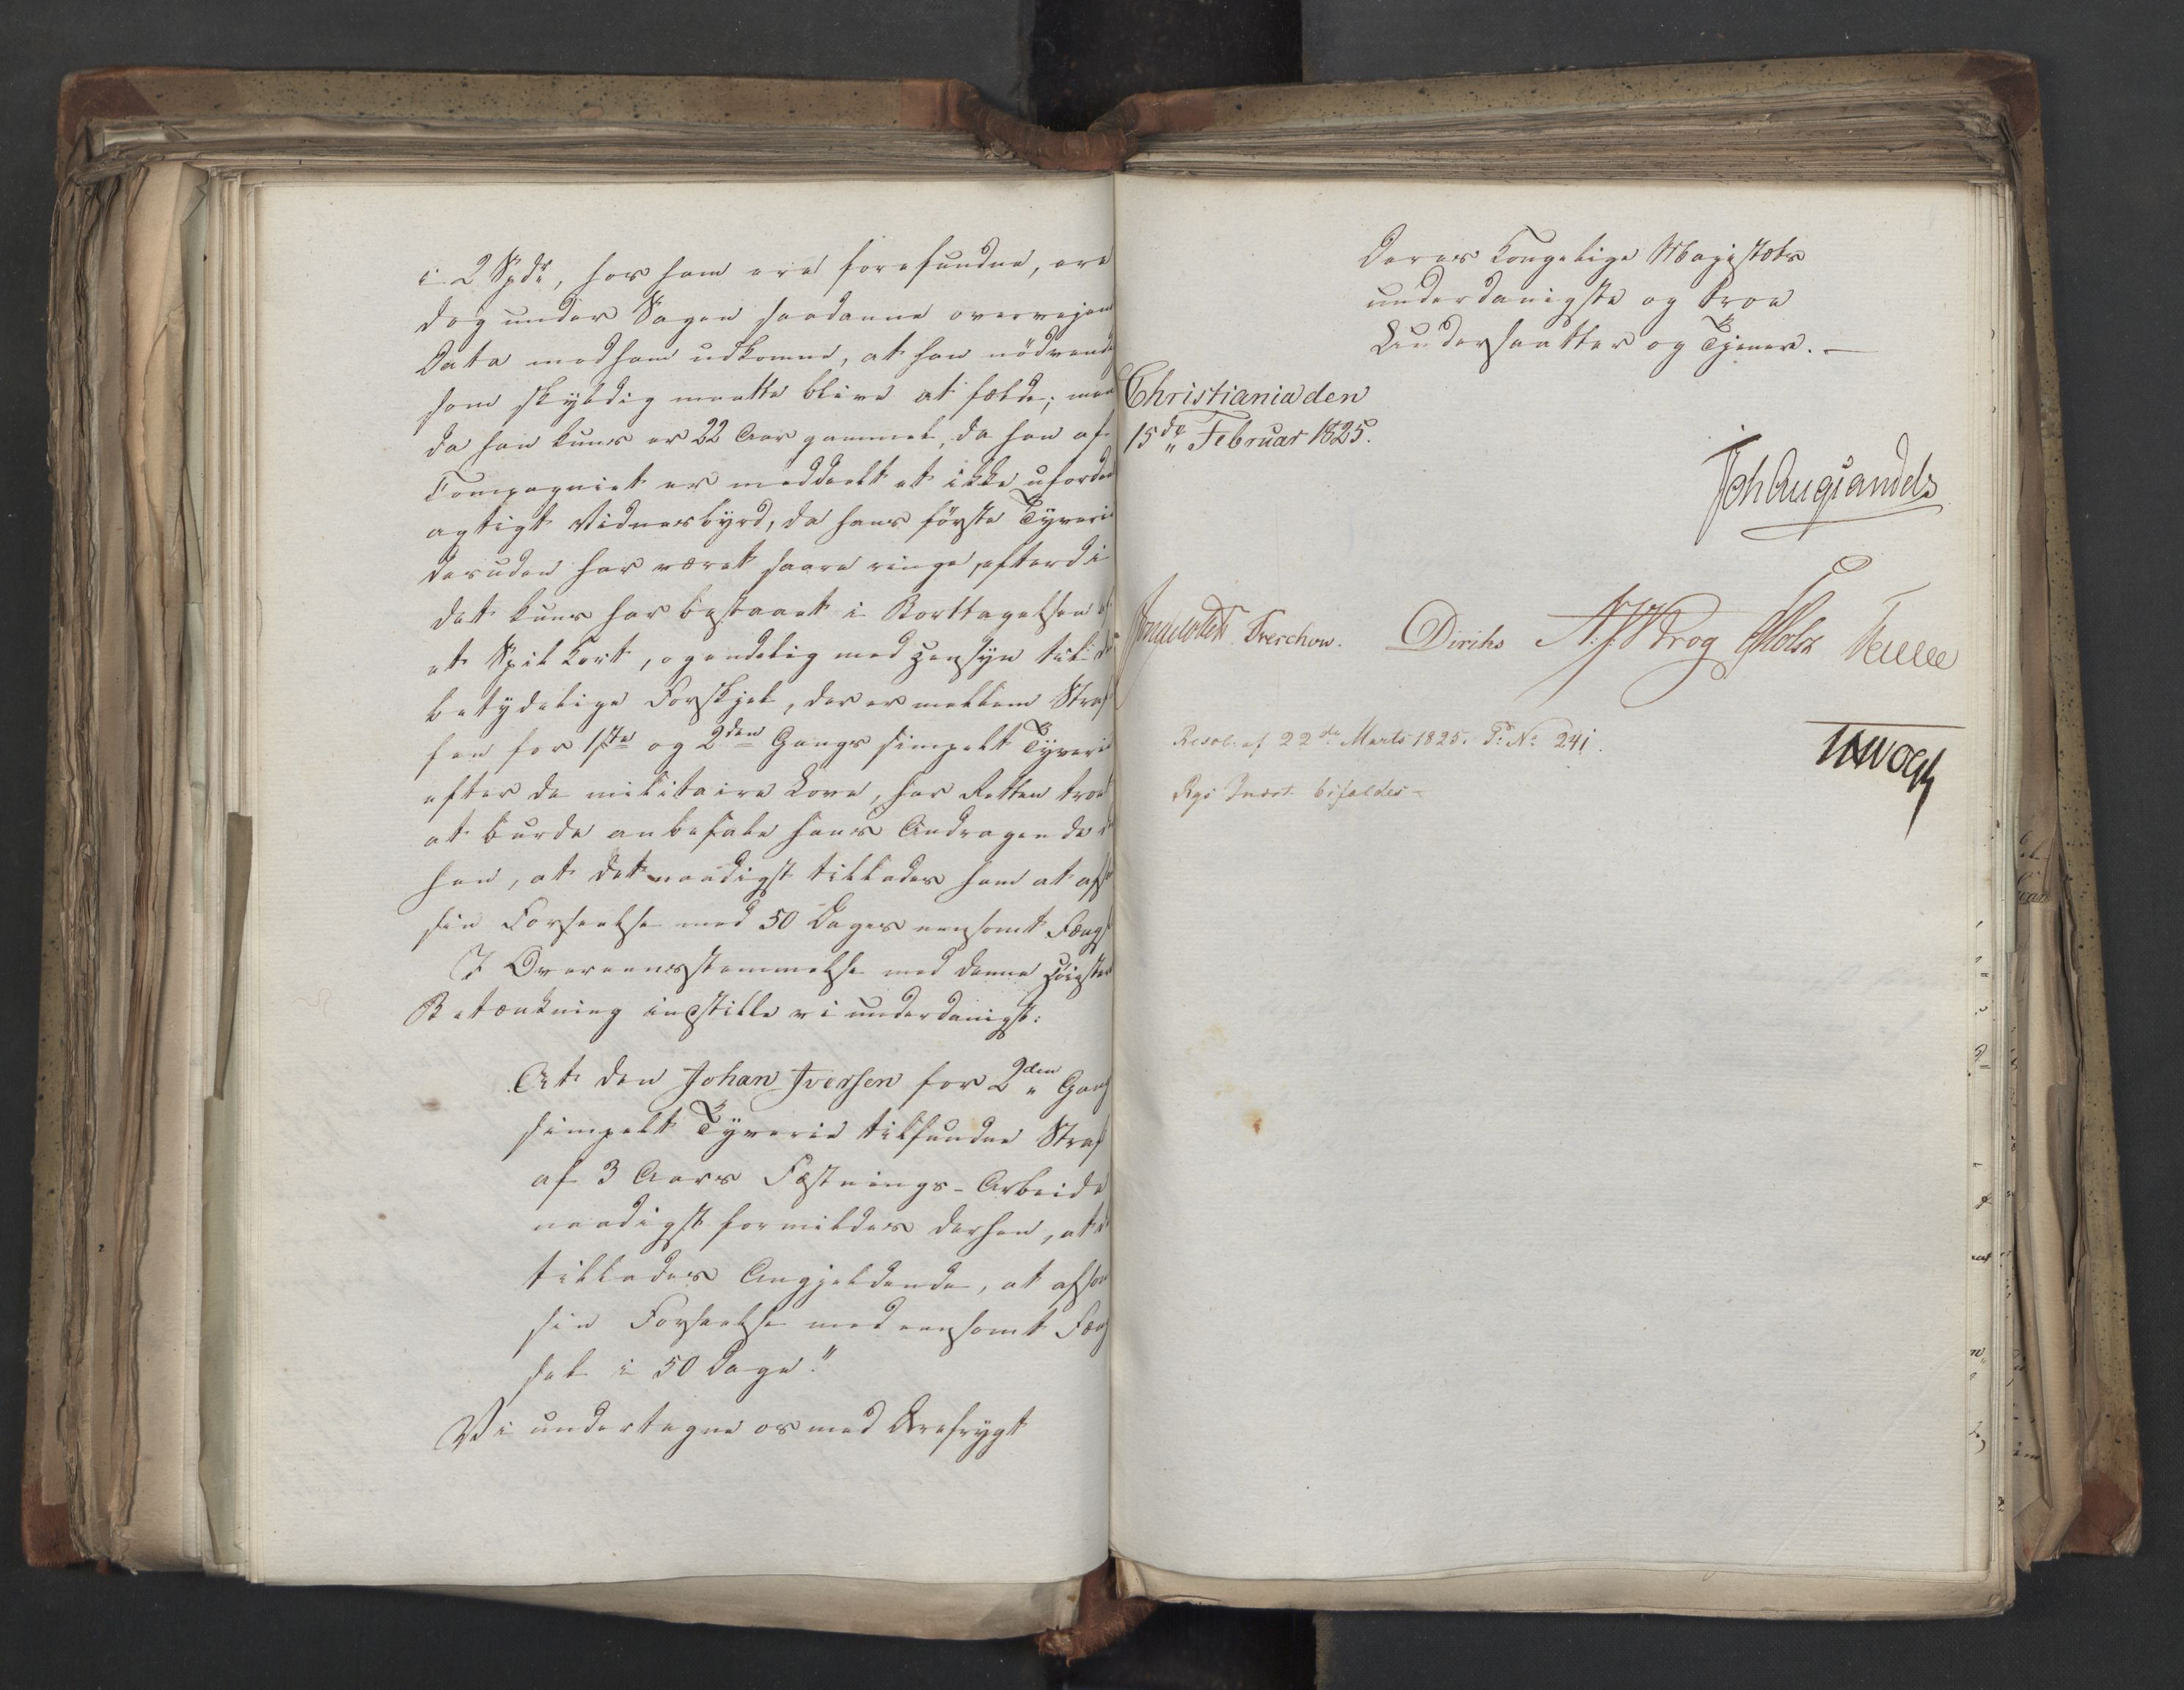 i 2 Spdr, hos ham ere forefundne, ere
dog under Sagen saadanne overvejend
Data mod ham udkomne, at han nödvend
som skyldig maatte blive at fælde; men
da han kuns er 22 Aar gammel, da han af
Compagniet er meddeelt et ikke ufordeel
agtigt Vidnesbyrd, da hans förste Tyverie
desuden har været saare ringe, efterdi
det kuns har bestaaet i Borttagelsen af
et Spil Kort, og endelig med Hensyn til d
betydelige Forskjel, der er mellem Straf
fen for 1ste og 2den Gangs simpelt Tyverie
efter de militaire Love, har Retten troet
at burde anbefale hans Andragende d
hen, at det naadigst tillades ham at afso
sin Forseelse med 50 Dages eensomt Fængs
I Overeensstemmelse med denne Höieste
Betænkning indstille vi underdanigst:
At den Johan Iversen for 2den Gang
simpelt Tyverie tilfundne Straf
af 3 Aars Fæstnings-Arbeide
naadigst formildes derhen, at d
tillades Angjeldende, at afson
sin Forseelse med eensomt Fæng
sel i 50 Dage."
Vi undertegne os med Ærefrygt
Deres Kongelige Majestæts
underdanigste og troe
Undersaatter og Tjenere. –
Christiania den
15de Februar 1825.
Joh Aug Sandels
Treschow. Diriks Krog Holst
Resol. af 22de Marts 1825. No 241.
Rgs Indst. bifaldes –
Vogt